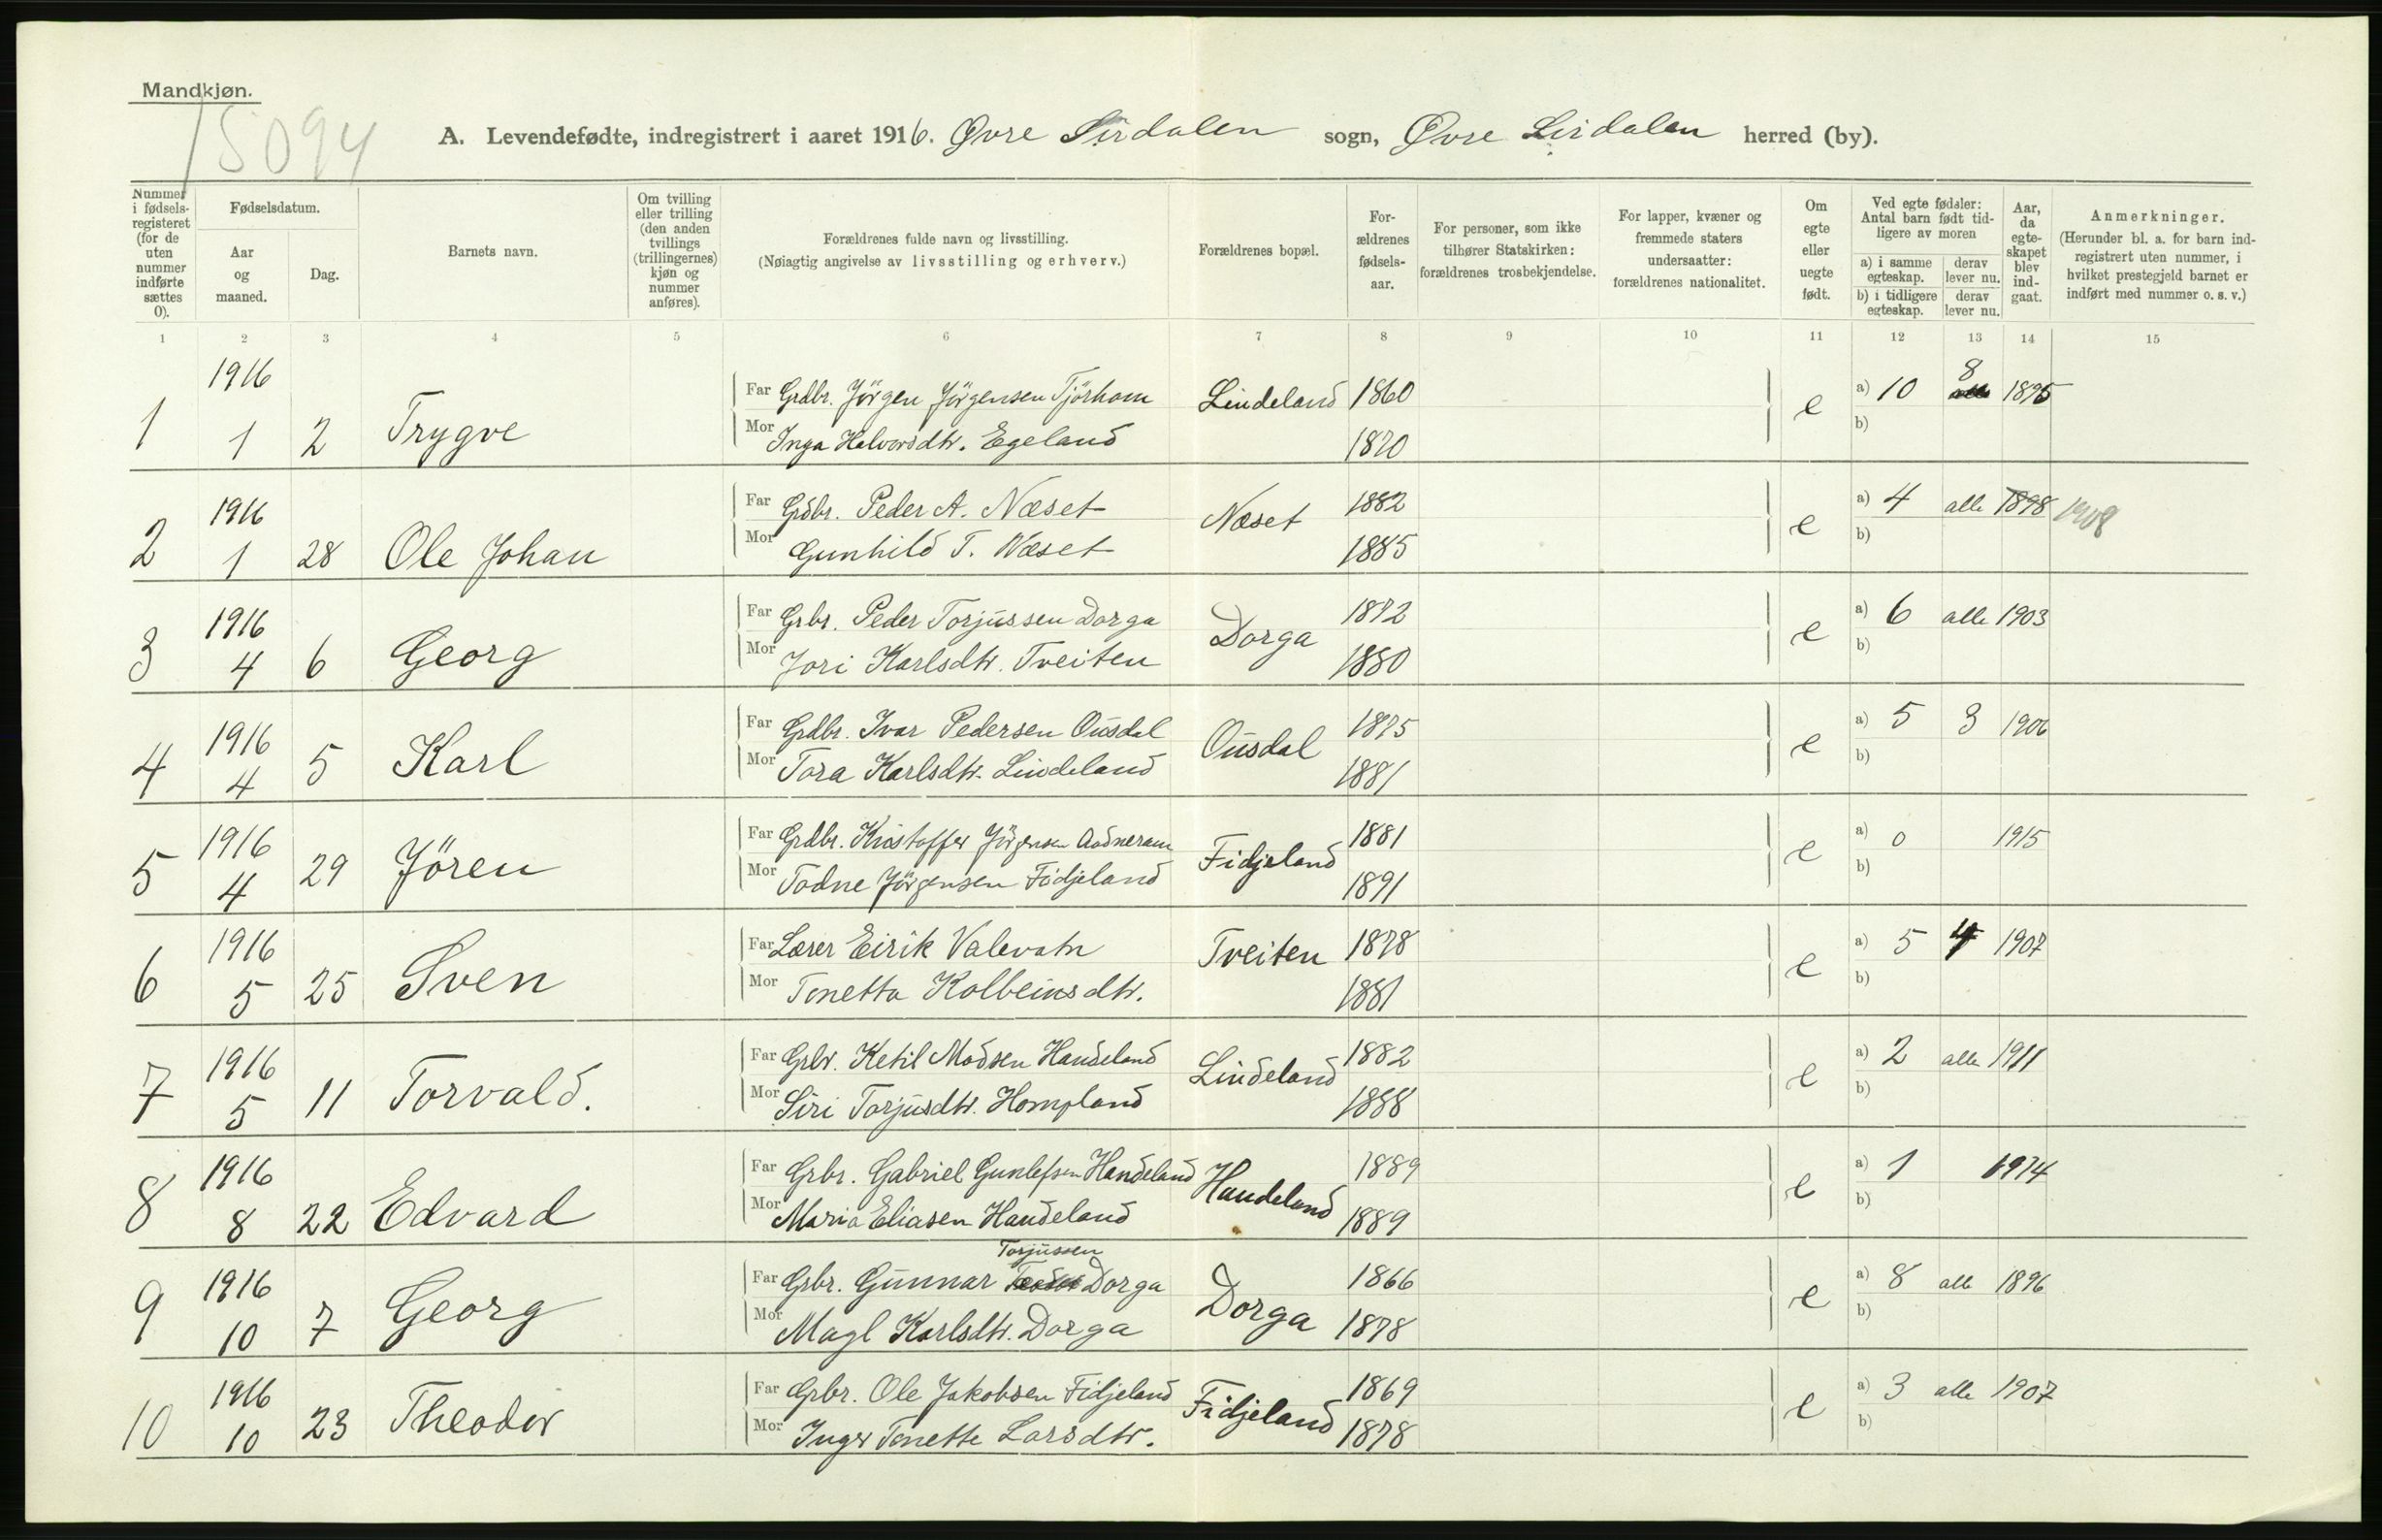 Mandkjøn.
15094
A. Levendefødte, indregistrert i aaret 1916. Øvre Sirdalen sogn, Øvre Sirdalen herred (by).
Nummer i fødsels-registeret (for de uten nummer indførte sættes 0).
Fødselsdatum.
Aar og maaned.
Dag.
Barnets navn.
Om tvilling eller trilling (den anden tvillings (trillingernes) kjøn og nummer anføres).
Forældrenes fulde navn og livsstilling.
(Nøiagtig angivelse av livsstilling og erhverv.)
Forældrenes bopæl.
For-ældrenes fødsels-aar.
For personer, som ikke tilhører Statskirken: forældrenes trosbekjendelse.
For lapper, kvæner og fremmede staters undersaatter: forældrenes nationalitet.
Om egte eller uegte født.
Ved egte fødsler: Antal barn født tid-ligere av moren
a) i samme egteskap.
derav lever nu.
b) i tidligere egteskap.
derav lever nu.
Aar, da egte-skapet blev ind-gaat.
Anmerkninger.
(Herunder bl. a. for barn ind-registrert uten nummer, i hvilket prestegjeld barnet er indført med nummer o. s. v.)
1 2 3 4 5 6 7 8 9 10 11 12 13 14 15
1916 Far Grdbr. Jörgen Jörgensen Tjörhom Lindeland 1860 a) 10 8 1895
1 1 2 Trygve Mor Inga Halvorsdtr. Egeland 1870 e b)
1916 Far Grdbr. Peder A. Næset Næset 1882 a) 4 alle 1898 1908
2 1 28 Ole Johan Mor Gunhild T. Næset 1885 e b)
1916 Far Grbr. Peder Torjussen Dorga Dorga 1872 a) 6 alle 1903
3 4 6 Georg Mor Jori Karlsdtr. Tveiten 1880 e b)
1916 Far Grdbr. Ivar Pedersen Ousdal Ousdal 1875 a) 5 3 1906
4 4 5 Karl Mor Tora Karlsdtr. Lindeland 1881 e b)
1916 Far Grdbr. Kristoffer Jörgensen Aadneram Fidjeland 1881 a) 0 1915
5 4 29 Jören Mor Todne Jörgensen Fidjeland 1891 e b)
1916 Far Lærer Eirik Valevatn Tveiten 1878 a) 5 4 1907
6 5 25 Sven Mor Tonetta Kolbeinsdtr. 1881 e b)
1916 Far Grbr. Ketil Madsen Haudeland Lindeland 1882 a) 2 alle 1911
7 5 11 Torvald. Mor Siri Torjusdtr. Hompland 1888 e b)
1916 Far Grbr. Gabriel Gunlefsen Handeland Haudeland 1889 a) 1 1914
8 8 22 Edvard Mor Maria Eliasen Haudeland 1889 e b)
Torjussen
1916 Far Grbr. Gunnar Dorga Dorga 1866 a) 8 alle 1896
9 10 7 Georg Mor Magl Karlsdtr. Dorga 1878 e b)
1916 Far Grbr. Ole Jakobsen Fidjeland Fidjeland 1869 a) 3 alle 1907
10 10 23 Theodor Mor Inger Tonette Larsdtr. 1878 e b)